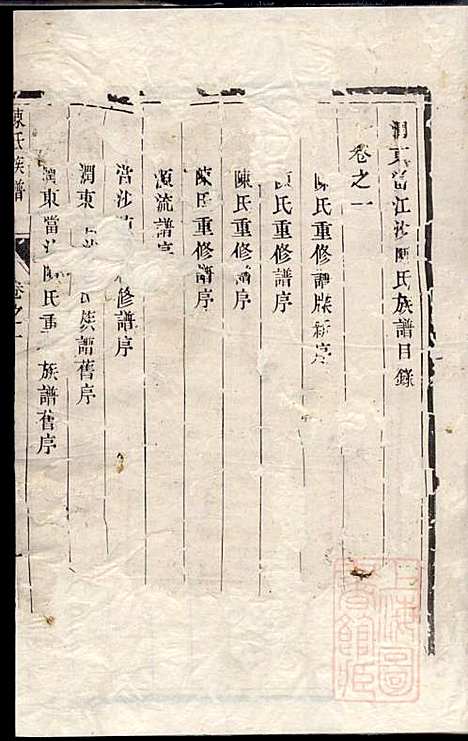 潤東當江沙陳氏族譜目錄
卷之一
陳氏重修譜牒新序
陳氏重修譜序
陳氏重修譜序
陳氏重修譜序
源流譜序
當沙 修譜序
潤東 沙 氏族譜舊序
潤東當沙陳氏重 族譜舊序
陳氏族譜 卷之一
上海圖書館藏